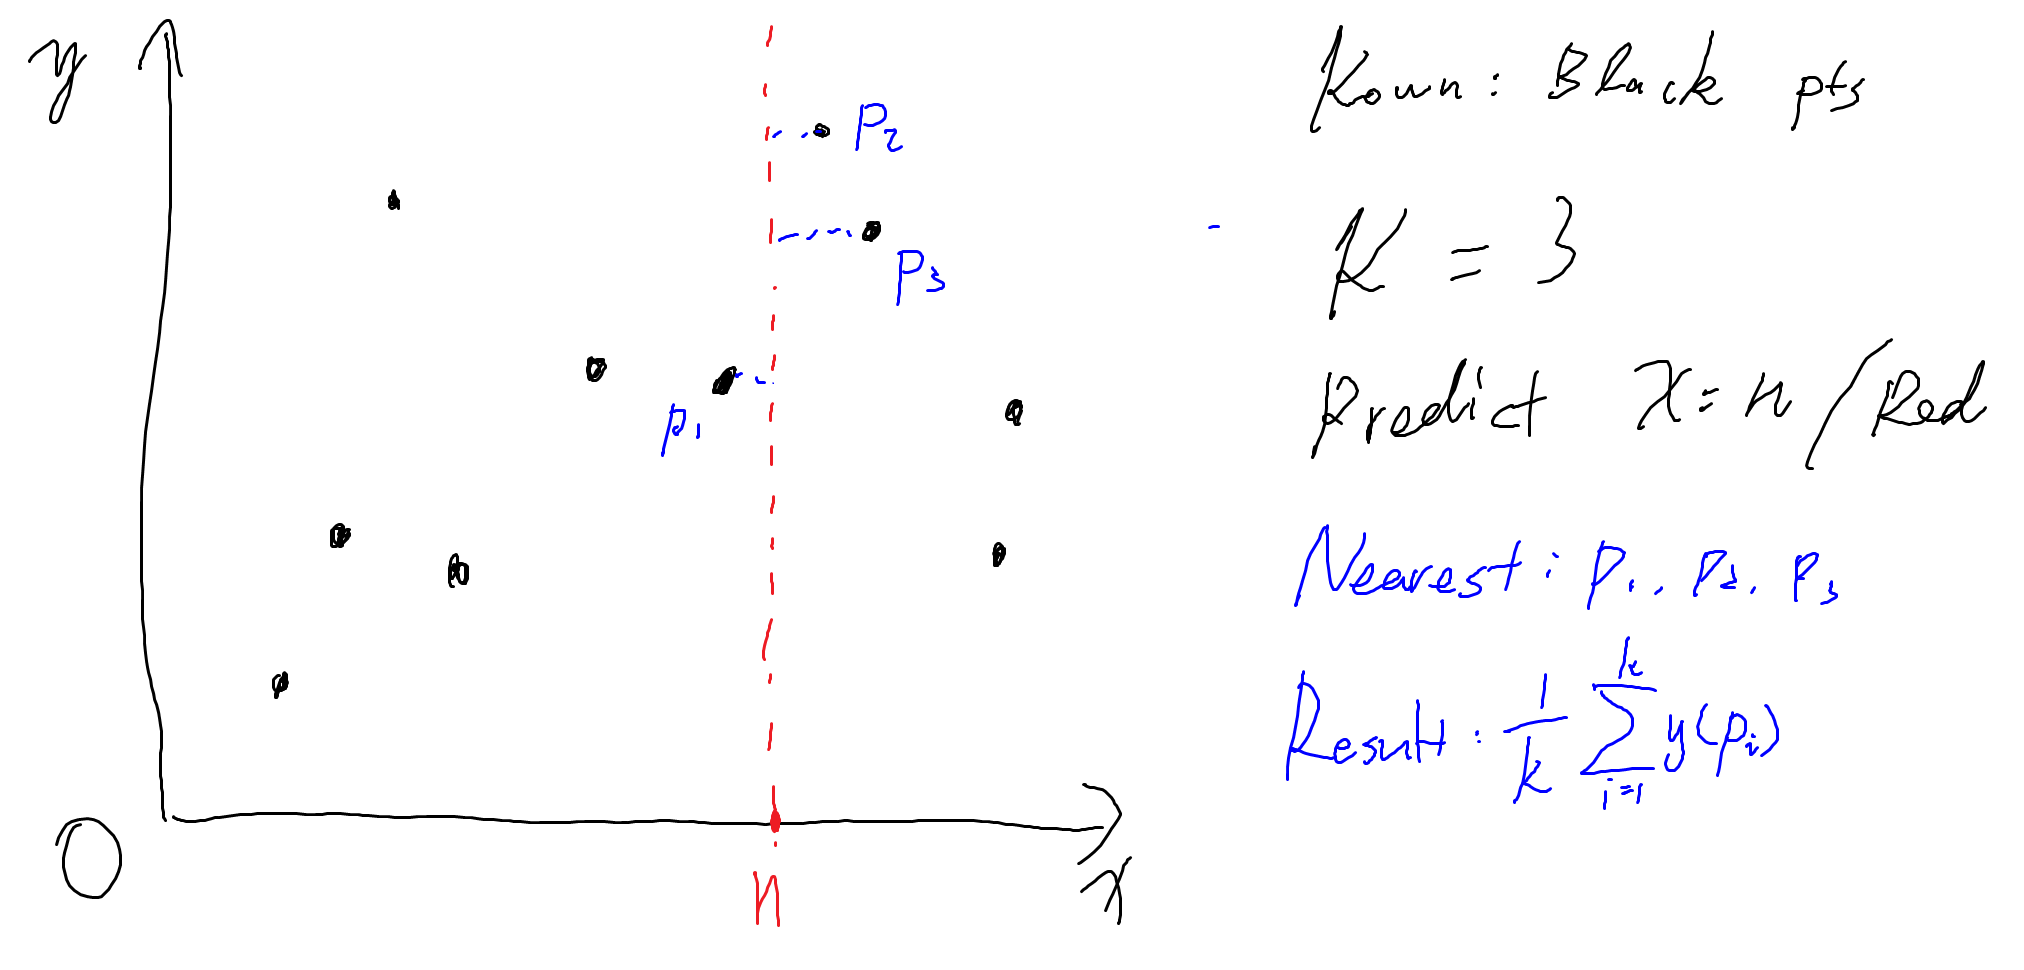 y
P2
P3
P1
O
n
x
Kown: Black pts
K = 3
Predict x=n/Red
Nearest: P1, P2, P3
Result: 1/k ∑_{i=1}^{k} y(pi)